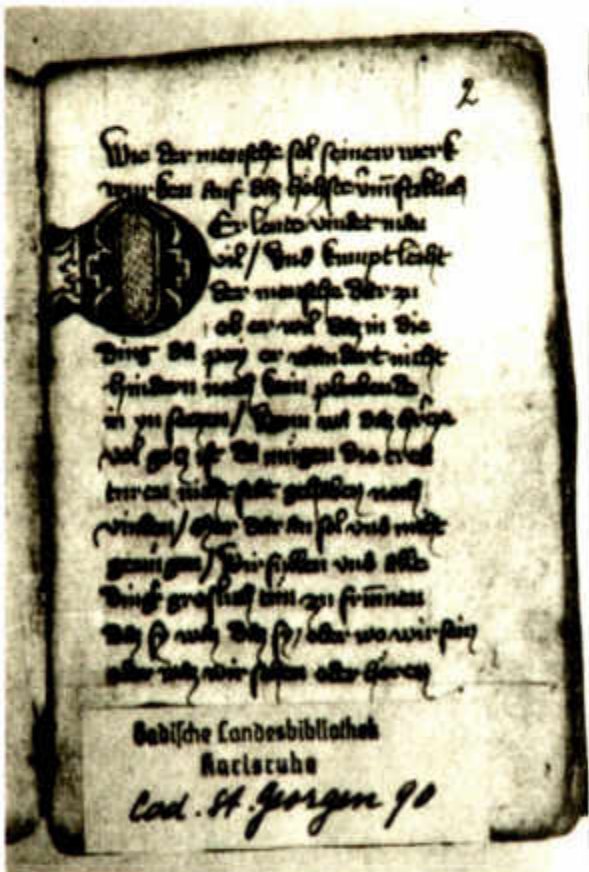 2
Wie der mensche sol seinew werk
wurken auf daz hohste vernunftiklich
Er leute vindet man
vil / vnd kumpt leiht
der mensche dar zu
ob er wil daz in die
ding da pey er wandert niht
hindern noch kain
in yn seczen / wann mit daz hercze
vol gotz ist da mugen die crea
turen niht stat gehaben noch
vinden / aber dar an sol vns niht
genugen / wir sullen vns alle
ding groslich zu frumen
daz sy waz daz sy / oder wo wir sein
oder waz wir sehen oder horen
Badische Landesbibliothek
Karlsruhe
Cod. St. Georgen 90